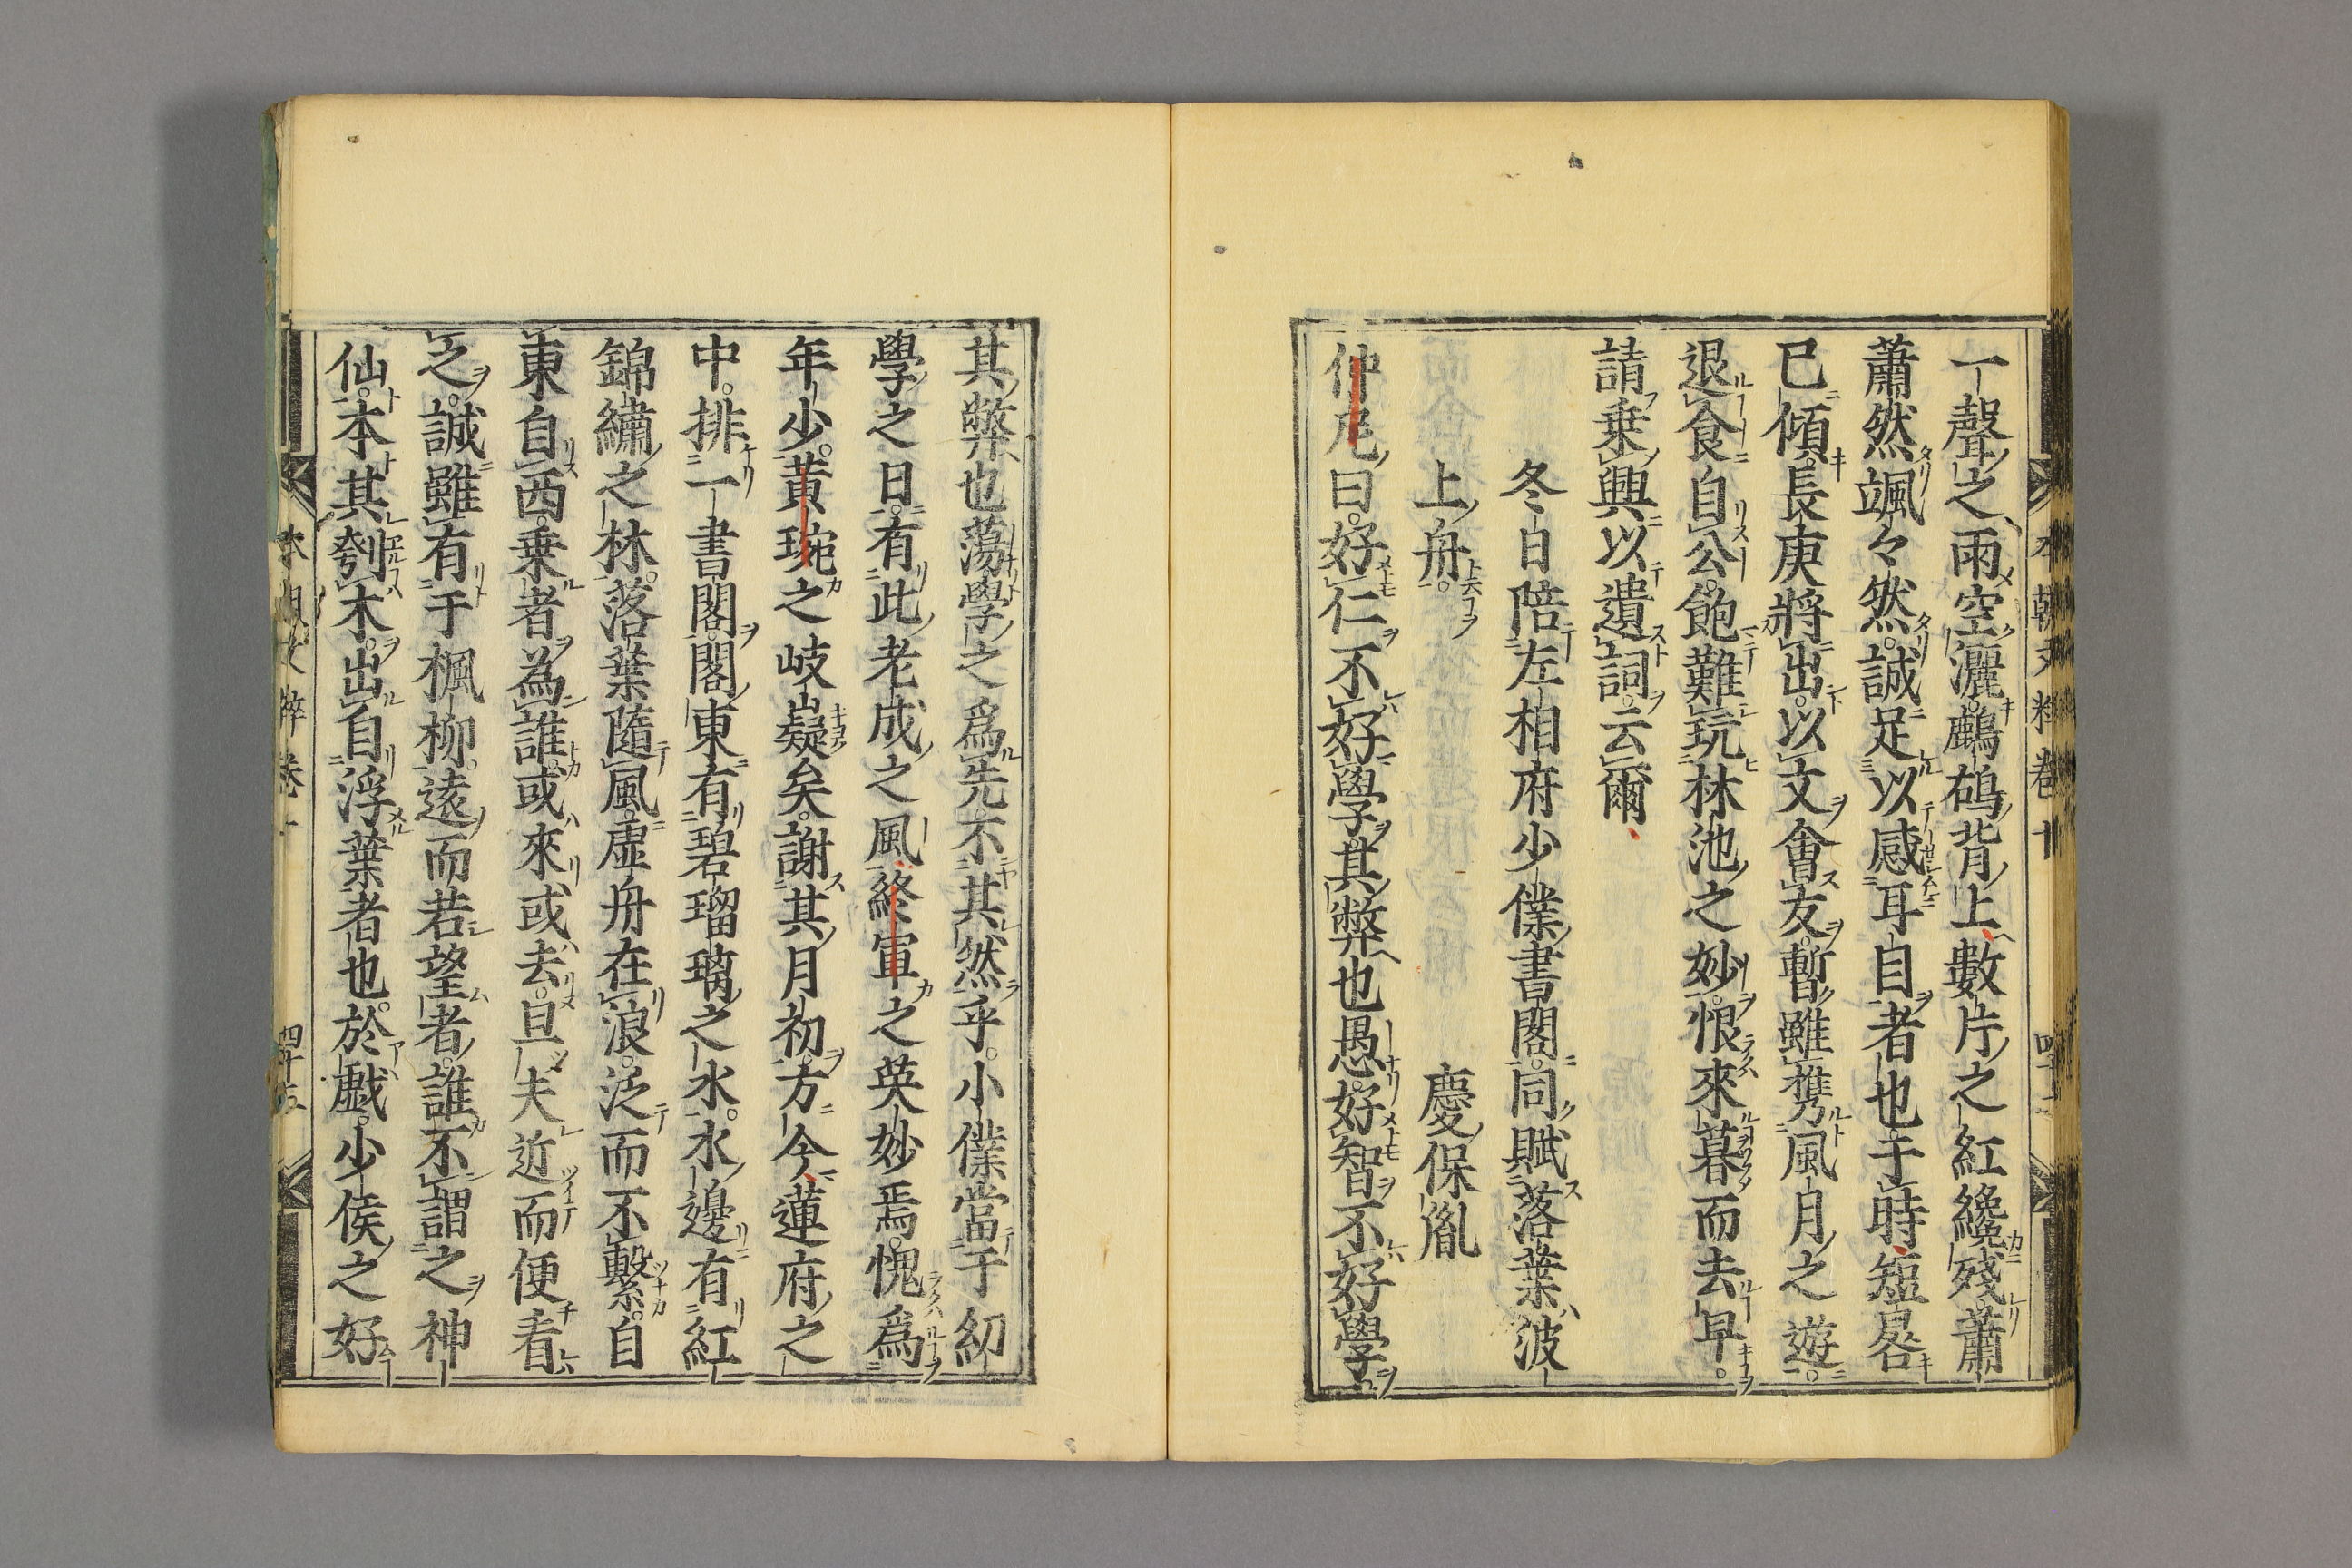 一聲之雨空灑鸕鷀背上數片之紅纔殘蕭
蕭然颯々然誠足以感耳目者也于時短晷
已傾長庚將出以文會友暫雖携風月之遊
退食自公飽難玩林池之妙恨來暮而去早
請乗興以遺詞云爾
冬日陪左相府少僕書閣同賦落葉波
上舟 慶保胤
仲尼曰好仁不好學其弊也愚好智不好學
其弊也蕩學之爲先不其然乎小僕當于幼
學之日有此老成之風終軍之英妙焉愧爲
年少黄琬之岐嶷矣謝其月初方今蓮府之
中排一書閣閣東有碧瑠璃之水水邊有紅
錦繡之林落葉隨風虚舟在浪泛而不繫自
東自西乗者為誰或來或去且夫近而便看
之誠雖有于楓柳遠而若望者誰不謂之神
仙本其刳木出自浮葉者也於戯少侯之好
本朝文粹卷十
四十五